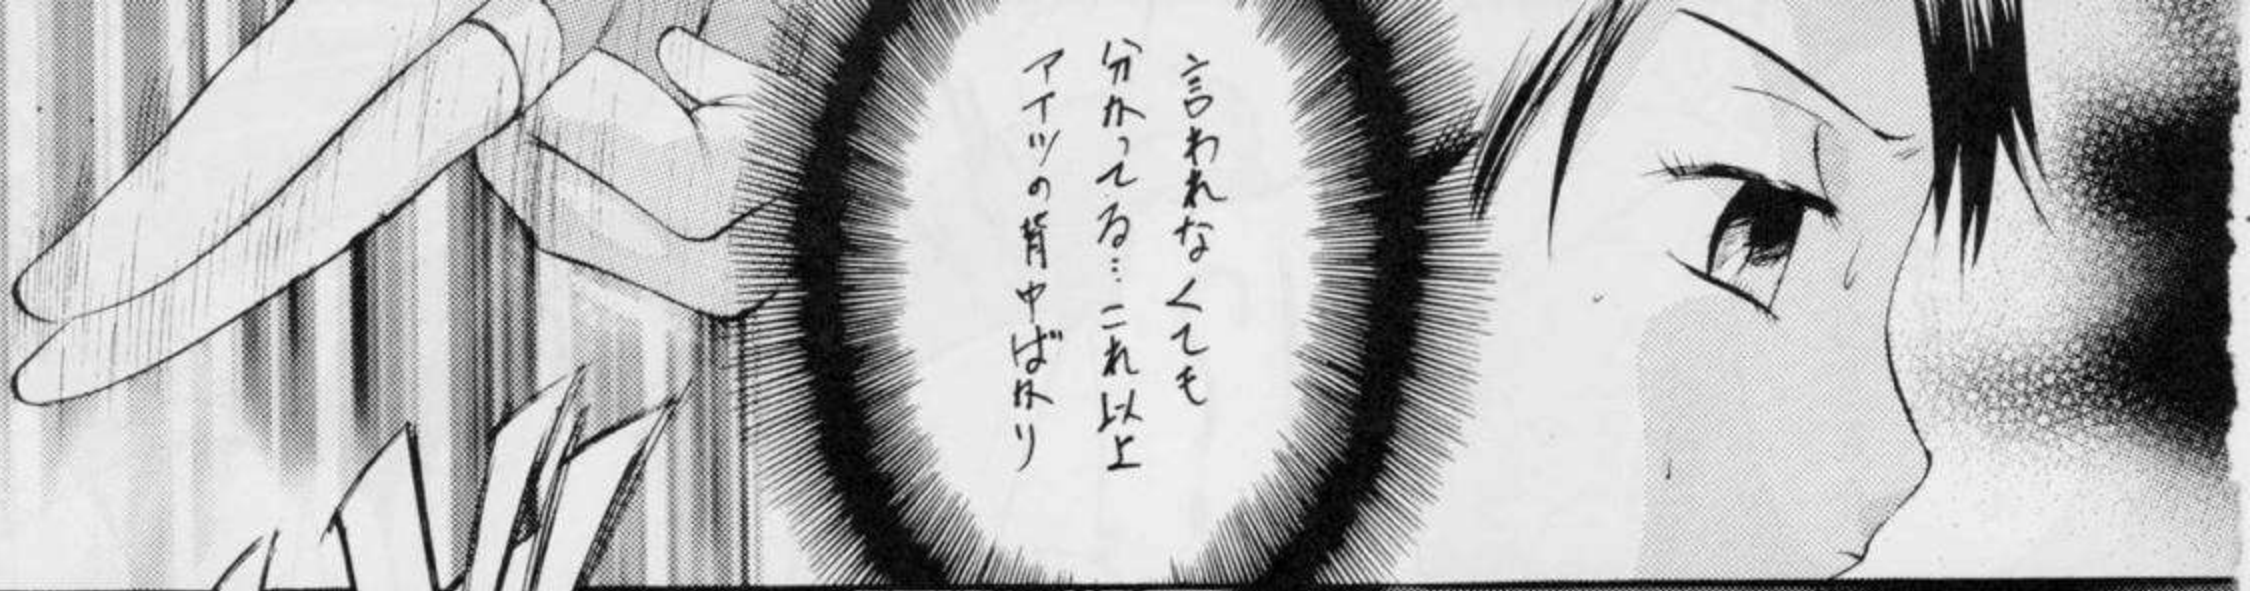 言われなくても
分かってる…これ以上
アイツの背中ばかり